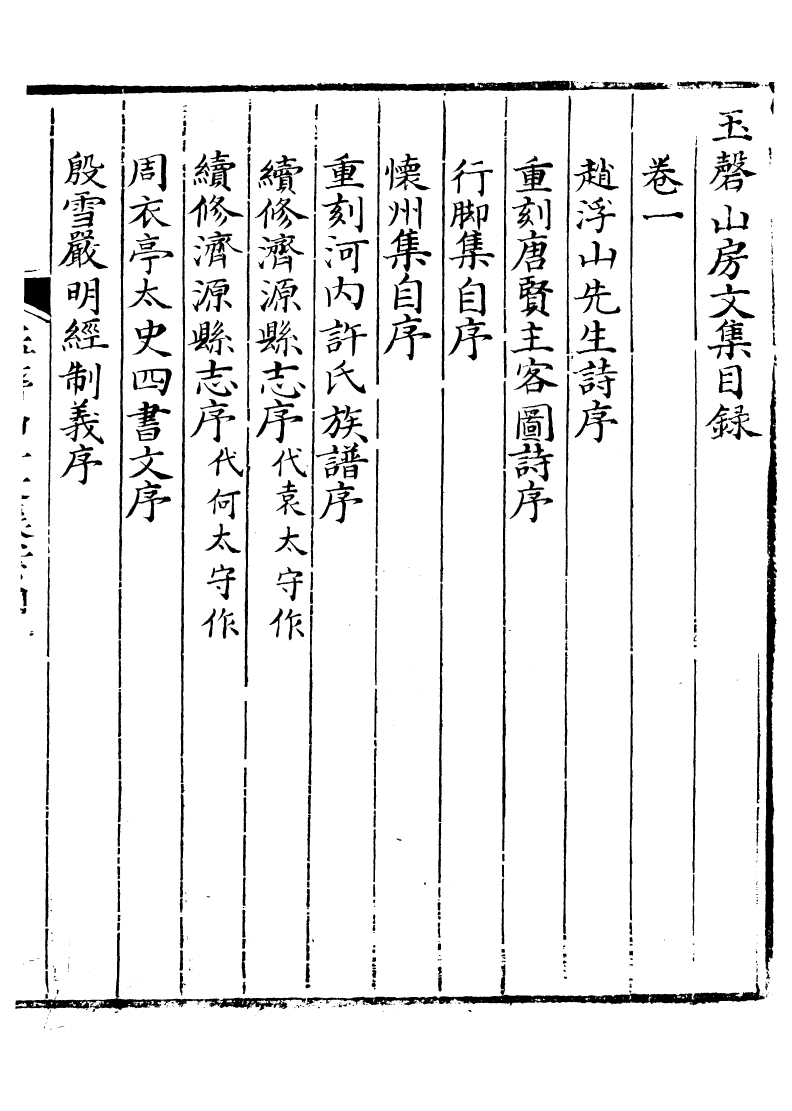 玉磬山房文集目録
卷一
趙浮山先生詩序
重刻唐賢主客圖詩序
行脚集自序
懷州集自序
重刻河内許氏族譜序
續修濟源縣志序代袁太守作
續修濟源縣志序代何太守作
周衣亭太史四書文序
殷雪巖明經制義序